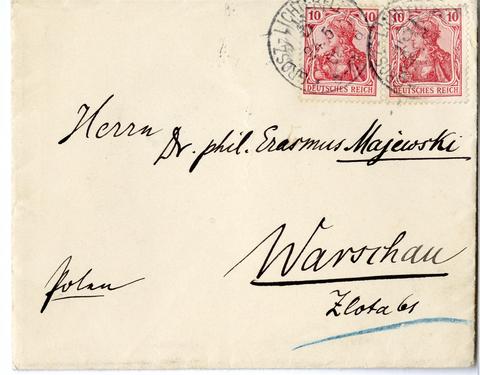 10 10 10 10
DEUTSCHES REICH DEUTSCHES REICH
Herrn
Dr. phil. Erasmus Majewski
Warschau
Polen
Zlota 61